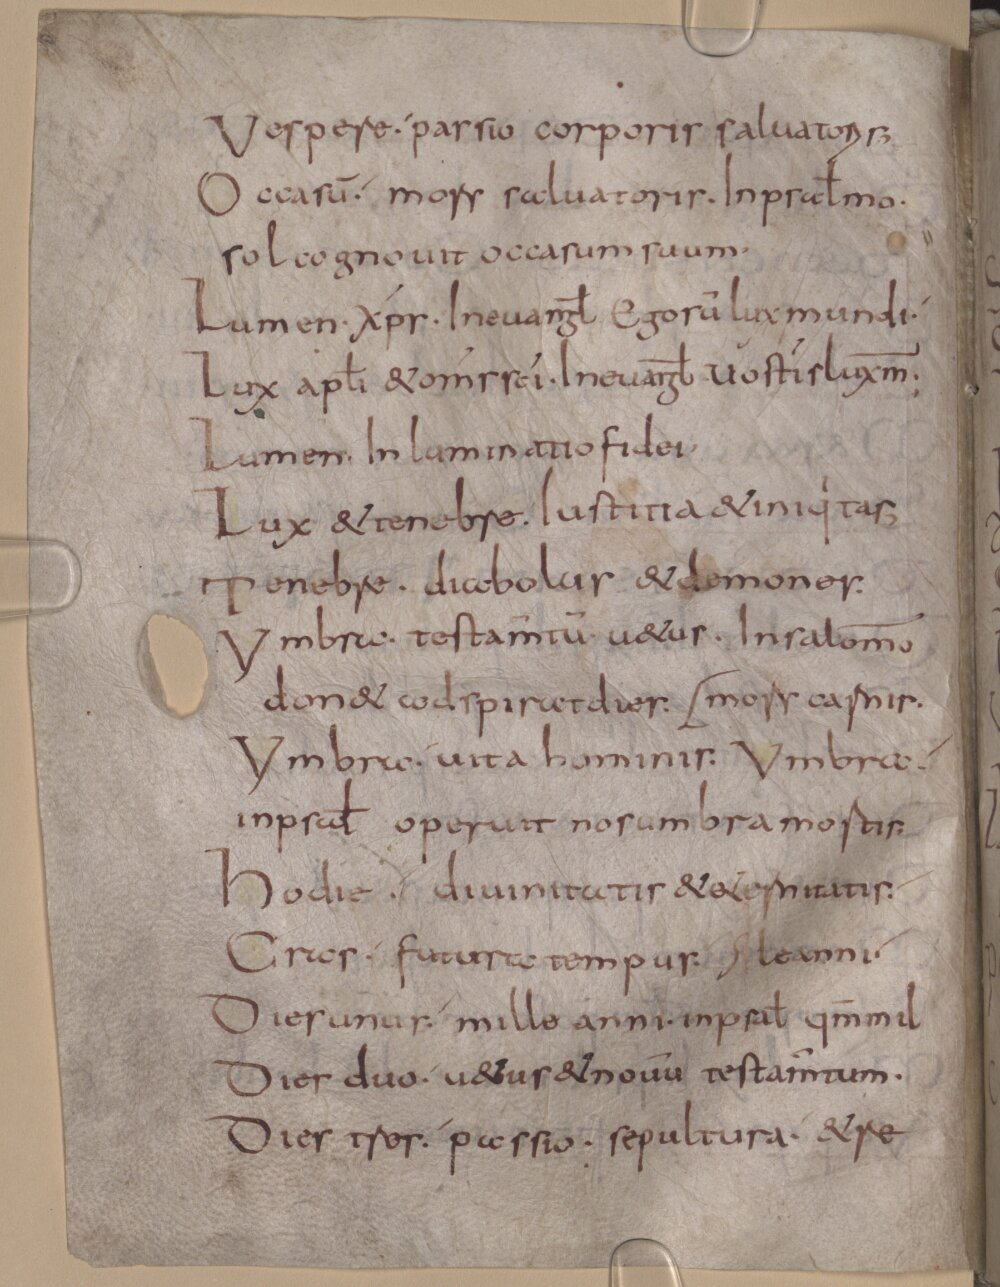 Vespere· passio corporis saluatoris
Occasū· mors saluatoris· In psal̄mo·
sol cognouit occasum suum·
Lumen· xp̄s· In euangl̄ Ego sū lux mundi·
Lux apl̄i & om̄s sc̄i· In euangl̄ Uos estis lux m̄·
Lumen· Inluminatio fidei·
Lux & tenebre· Iustitia & iniqitas
Tenebre· diabolus & demones·
Vmbra· testam̄tū u&us· In salomō
don& adspirat dies· [mors carnis·
Vmbra· uita hominis· Vmbra·
in psal̄ operuit nos umbra mortis
Hodie· diuinitatis & &ernitatis·
Cras· futura tempus·
Dies unus· mille anni· in psal̄ qm̄ mil
Dies duo· u&us & nouū testam̄tum·
Dies tres· passio· sepultura· & re